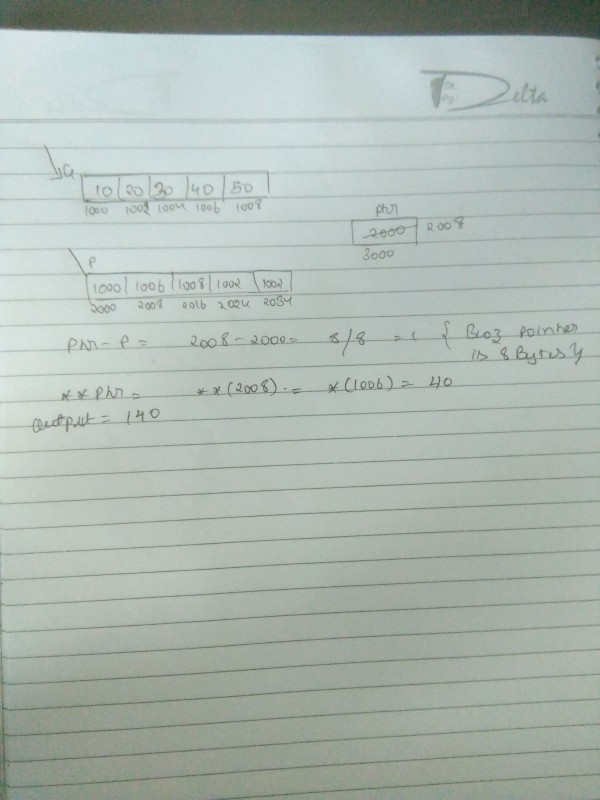 Delta
a
10 20 30 40 50
1000 1002 1004 1006 1008
Ptr
2000 2008
3000
P
1000 1006 1008 1002 1002
2000 2008 2016 2024 2034
Ptr - P = 2008 - 2000 = 8/8 = 1 { Bcoz pointer
is 8 Bytes }
**Ptr = **(2008) = *(1006) = 40
Output = 140